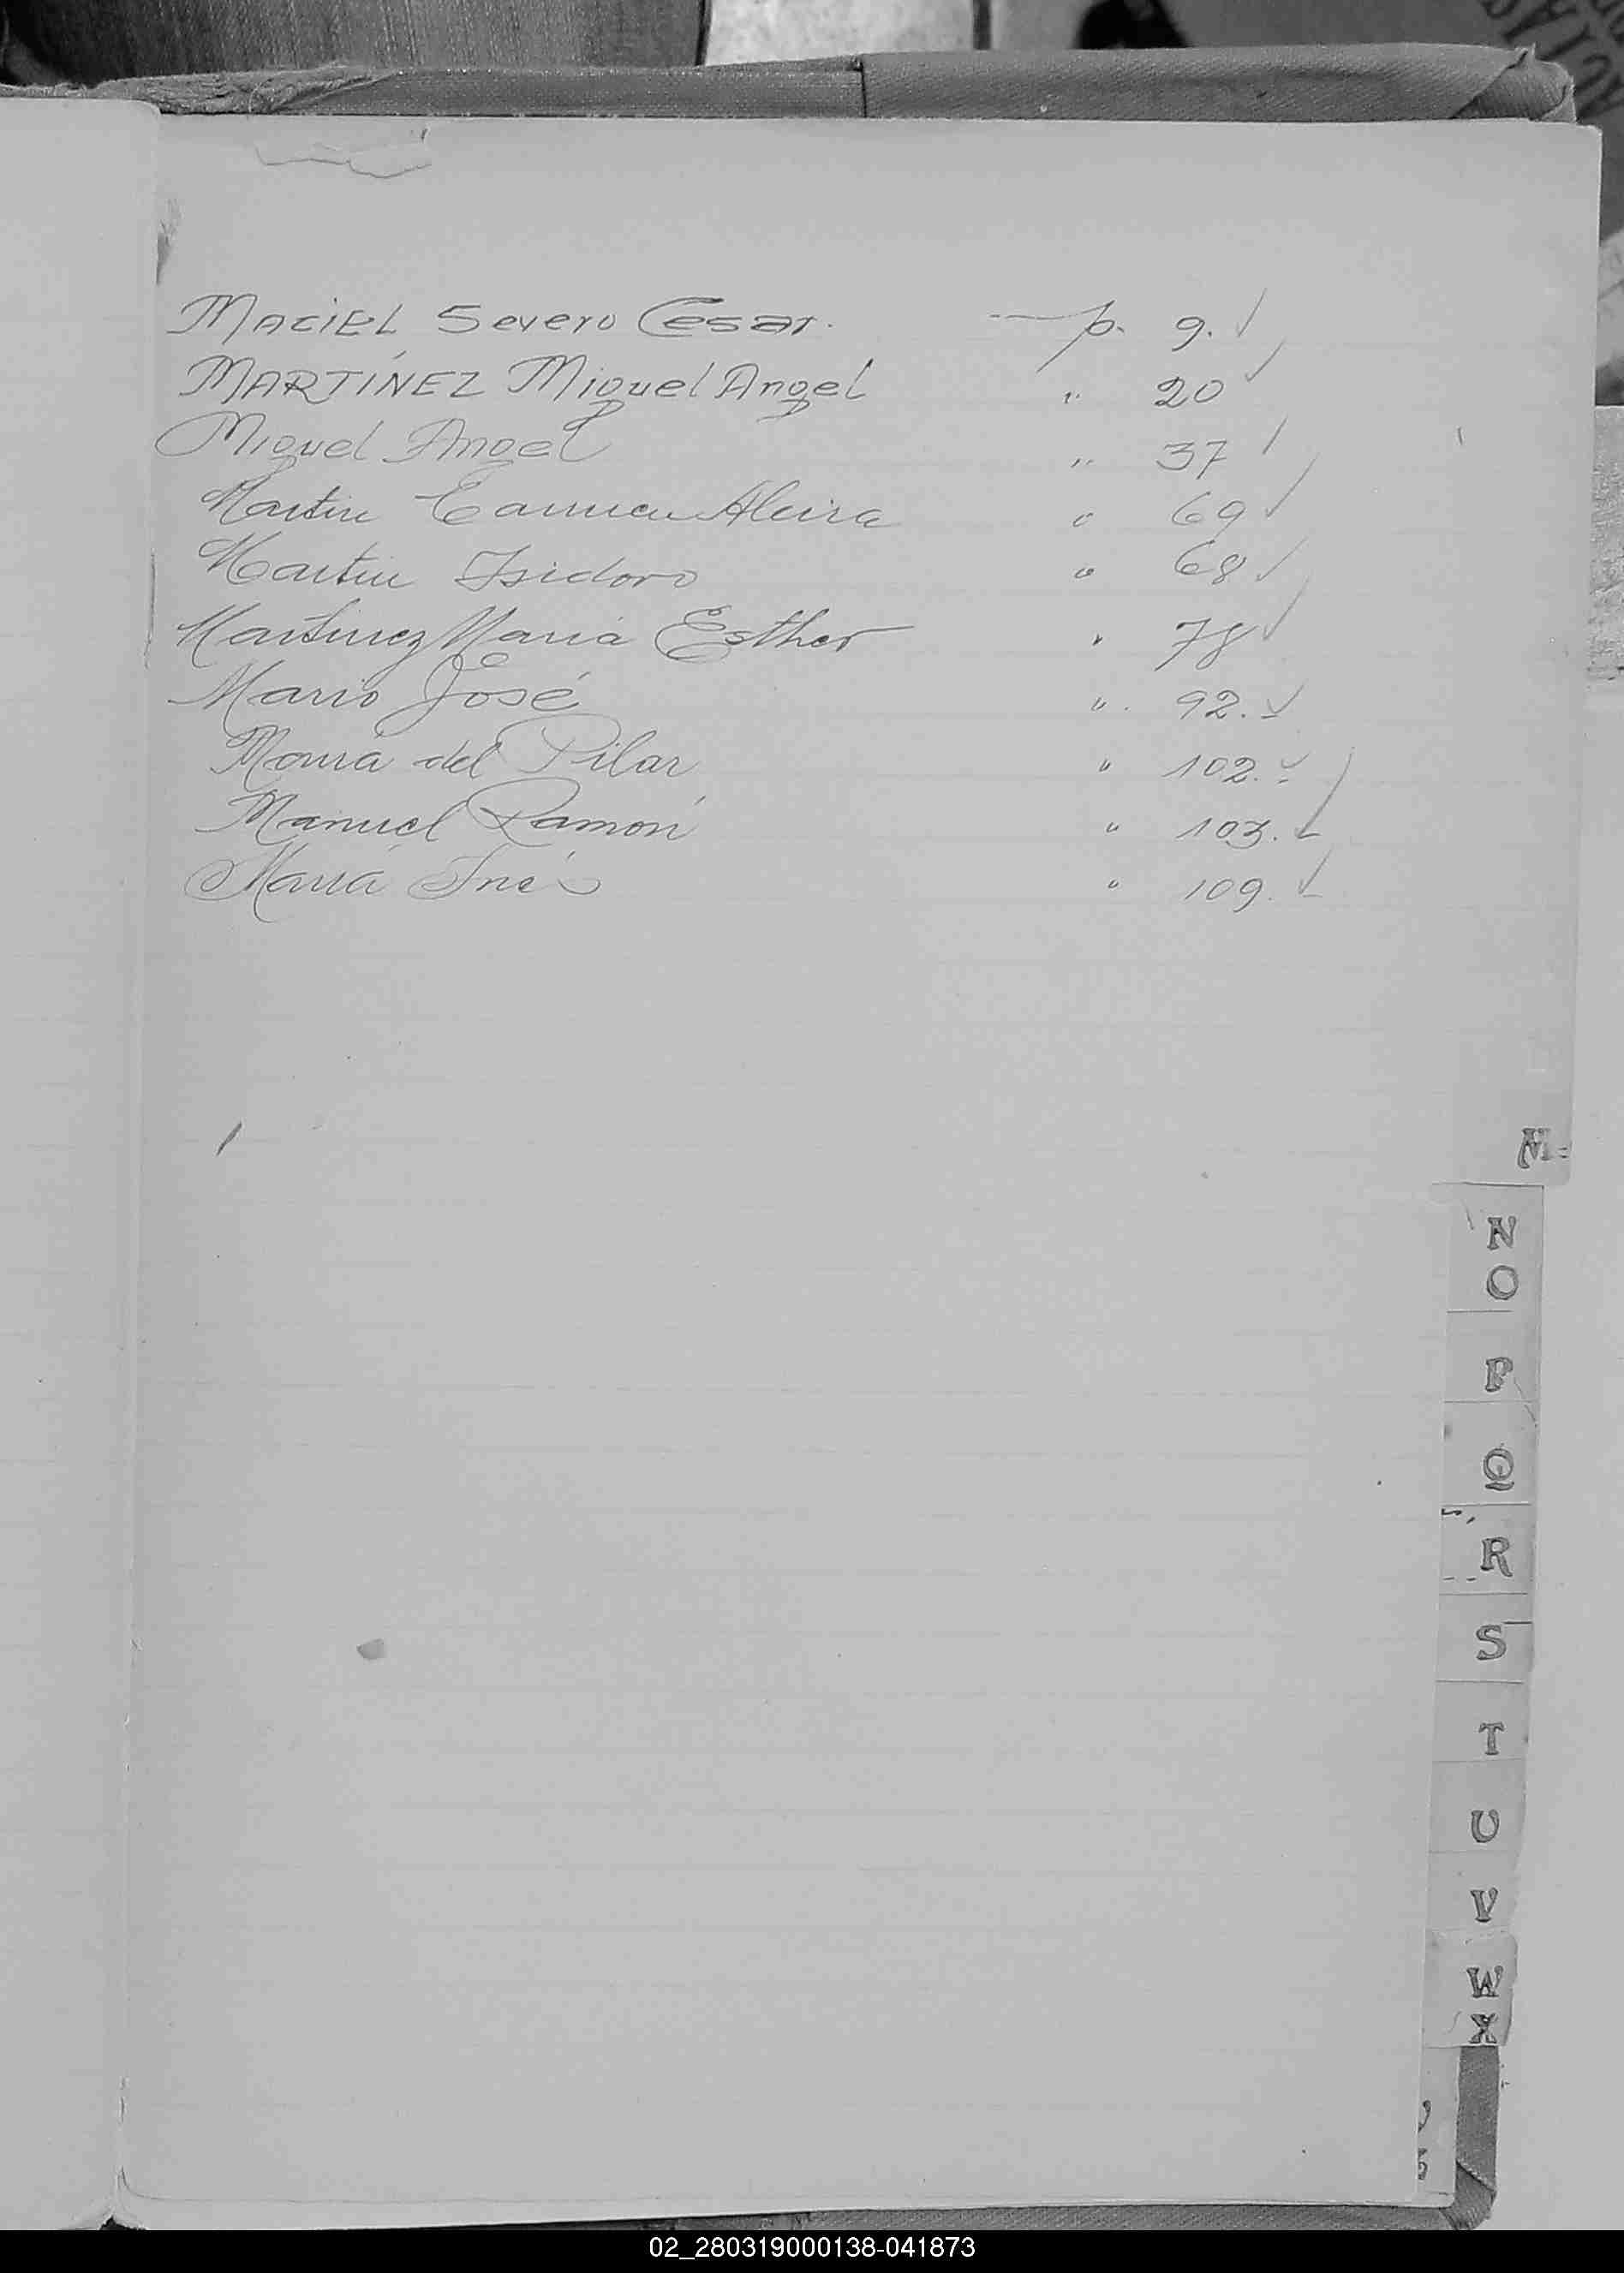 MACIEL Severo Cesar. — p. 9. ✓
MARTÍNEZ Miguel Angel " 20 ✓
Miguel Angel " 37 ✓
Martin Carmen Alcira " 69 ✓
Martin Isidoro " 68 ✓
Martinez Maria Esther " 78 ✓
Mario José " 92. ✓
María del Pilar " 102. ✓
Manuel Ramón " 103. ✓
María Inés " 109. ✓
M
N
O
P
Q
R
S
T
U
V
W
X
02_280319000138-041873